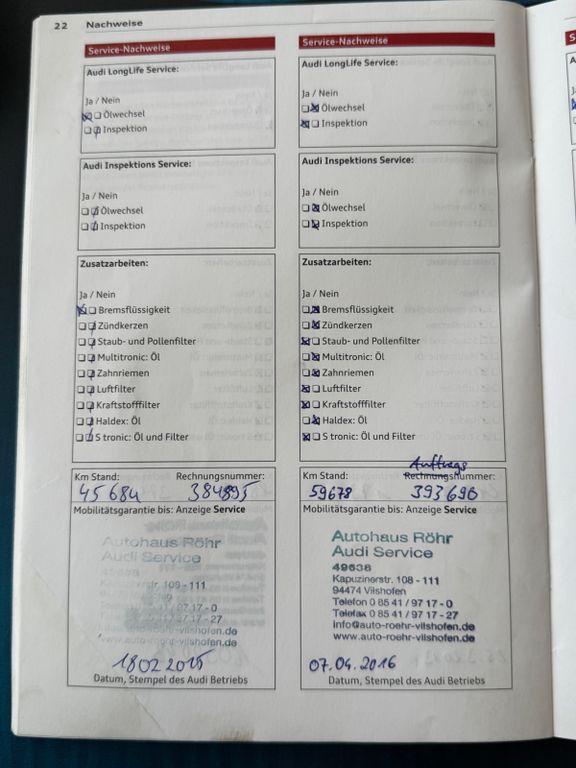 22 Nachweise
Service-Nachweise
Audi LongLife Service:
Ja / Nein
Ölwechsel
Inspektion
Audi Inspektions Service:
Ja / Nein
Ölwechsel
Inspektion
Zusatzarbeiten:
Ja / Nein
Bremsflüssigkeit
Zündkerzen
Staub- und Pollenfilter
Multitronic: Öl
Zahnriemen
Luftfilter
Kraftstofffilter
Haldex: Öl
S tronic: Öl und Filter
Km Stand: Rechnungsnummer:
45684 384895
Mobilitätsgarantie bis: Anzeige Service
Autohaus Röhr
Audi Service
Kapuzinerstr. 109 - 111
41/97 17 - 0
41/97 17 - 27
auto-roehr-vilshofen.de
www.auto-roehr-vilshofen.de
18.02.2015
Datum, Stempel des Audi Betriebs
Service-Nachweise
Audi LongLife Service:
Ja / Nein
Ölwechsel
Inspektion
Audi Inspektions Service:
Ja / Nein
Ölwechsel
Inspektion
Zusatzarbeiten:
Ja / Nein
Bremsflüssigkeit
Zündkerzen
Staub- und Pollenfilter
Multitronic: Öl
Zahnriemen
Luftfilter
Kraftstofffilter
Haldex: Öl
S tronic: Öl und Filter
Auftrags
Km Stand: Rechnungsnummer:
59678 393690
Mobilitätsgarantie bis: Anzeige Service
Autohaus Röhr
Audi Service
49638
Kapuzinerstr. 108 - 111
94474 Vilshofen
Telefon 0 85 41 / 97 17 - 0
Telefax 0 85 41 / 97 17 - 27
info@auto-roehr-vilshofen.de
www.auto-roehr-vilshofen.de
07.04.2016
Datum, Stempel des Audi Betriebs